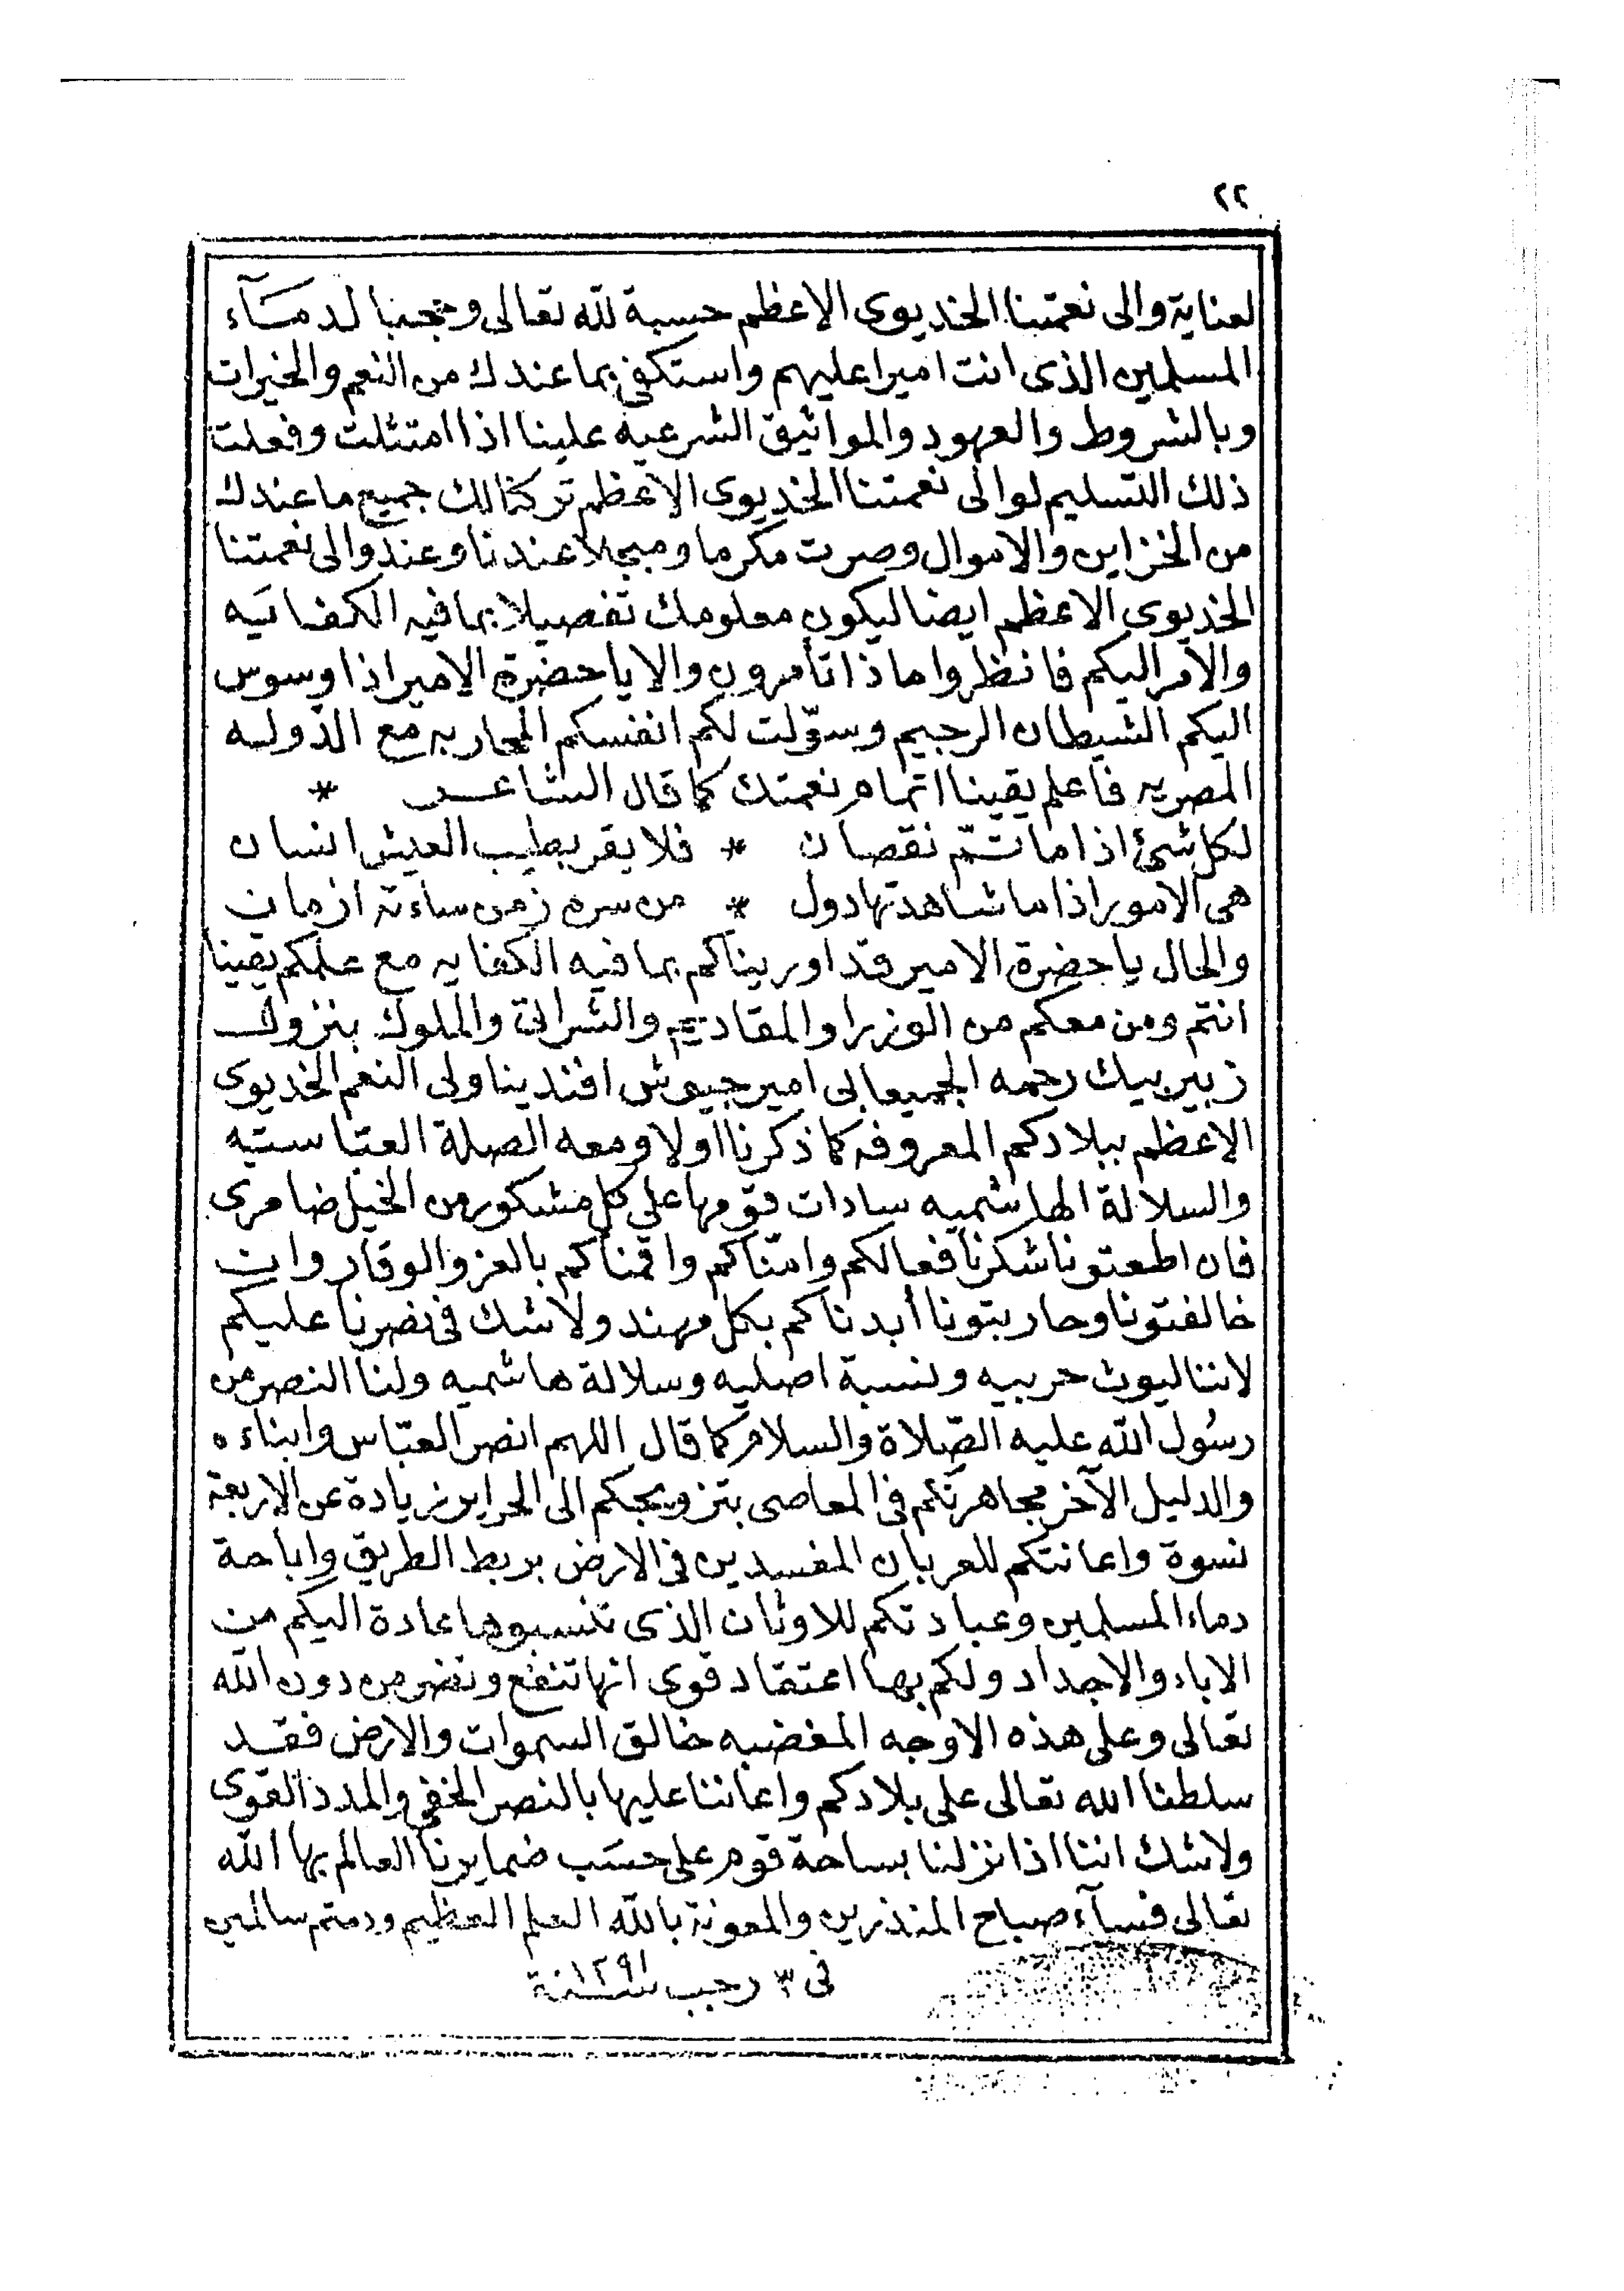 ٢٢
لعناية والى نعمتنا الخديوى الاعظم حسبة لله تعالى وتجنبا لدمآء
المسلمين الذى انت اميرا عليهم واستكفى بما عندك من النعم والخيرات
وبالشروط والعهود والمواثيق الشرعيه علينا اذا امتثلت وفعلت
ذلك التسليم لوالى نعمتنا الخديوى الاعظم تركنالك جميع ما عندك
من الخزاين والاموال وصرت مكرما ومبجلا عندنا وعند والى نعمتنا
الخديوى الاعظم ايضا ليكون معلومك تفصيلا بما فيه الكفائيه
والامر اليكم فانظروا ماذا تأمرون والا يا حضرة الامير اذا وسوس
اليكم الشيطان الرجيم وسوّلت لكم انفسكم المحاربه مع الدوله
المصريه فاعلم يقينا اتمام نعمتك كما قال الشاعر *
لكل شئ اذا ما تمّ نقصان * فلا يقر بطيب العيش انسان
هى الامور اذا ما شاهدتها دول * من سره زمن ساءته ازمان
والحال يا حضرة الامير قد اوريناكم بما فيه الكفايه مع علمكم يقينا
انتم ومن معكم من الوزرا والمقاديم والشراتى والملوك بنزول
زبير بيك رحمه الجميعابى امير جيوش افندينا ولى النعم الخديوى
الاعظم ببلادكم المعروفه كما ذكرنا اولا ومعه الصلة العباسيه
والسلالة الهاشميه سادات قومها على كل مشكور من الخيل ضامرى
فان اطعتونا شكرنا فعالكم وامنّاكم واقمناكم بالعز والوقار وان
خالفتونا وحاربتونا أبدناكم بكل مهند ولا شك فى نصرنا عليكم
لاننا ليوث حربيه ونسبة اصليه وسلالة هاشميه ولنا النصر من
رسُول الله عليه الصّلاة والسلام كما قال اللهم انصر العبّاس وابناءه
والدليل الآخر مجاهرتكم فى المعاصى بتزويجكم الى الحراير زيادة عن الاربعة
نسوة واعانتكم للعربان المفسدين فى الارض بربط الطريق واباحة
دماء المسلمين وعبادتكم للاوثان الذى تنسبوها عادة اليكم من
الاباء والاجداد ولكم بها اعتقاد قوى انها تنفع وتضر من دون الله
تعالى وعلى هذه الاوجه المغضبه خالق السموات والارض فقد
سلطنا الله تعالى على بلادكم واعاننا عليها بالنصر الخفى والمدد القوى
ولا شك اننا اذا نزلنا بساحة قوم على حسَب ضمايرنا العالم بها الله
تعالى فسآء صباح المنذرين والمعونة بالله العلى العظيم ودمتم سالمين
فى ٣ رجب سنة ١٢٩١